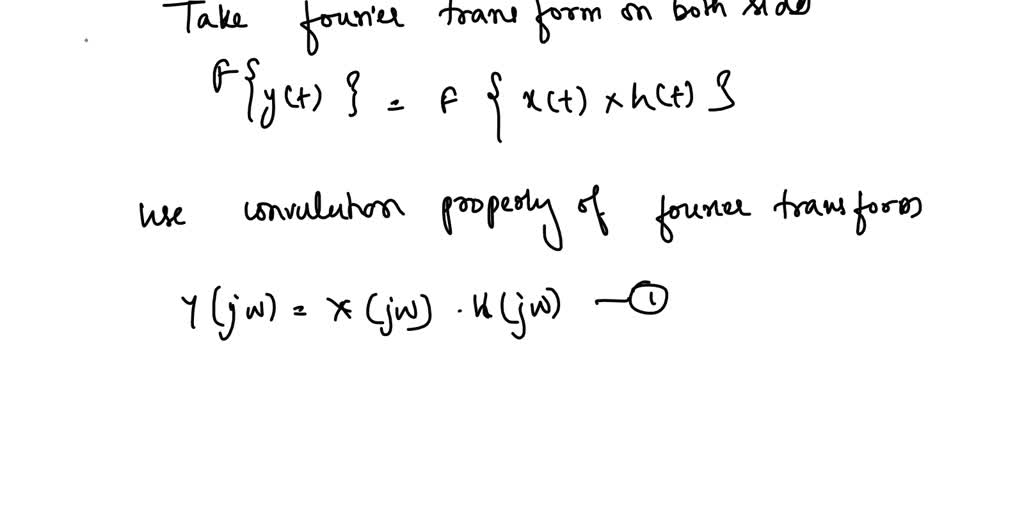 Take fourier transform on both side
F{y(t)} = F {x(t) × h(t)}
use convulution property of fourier transform
Y(jw) = X(jw) . H(jw) —①